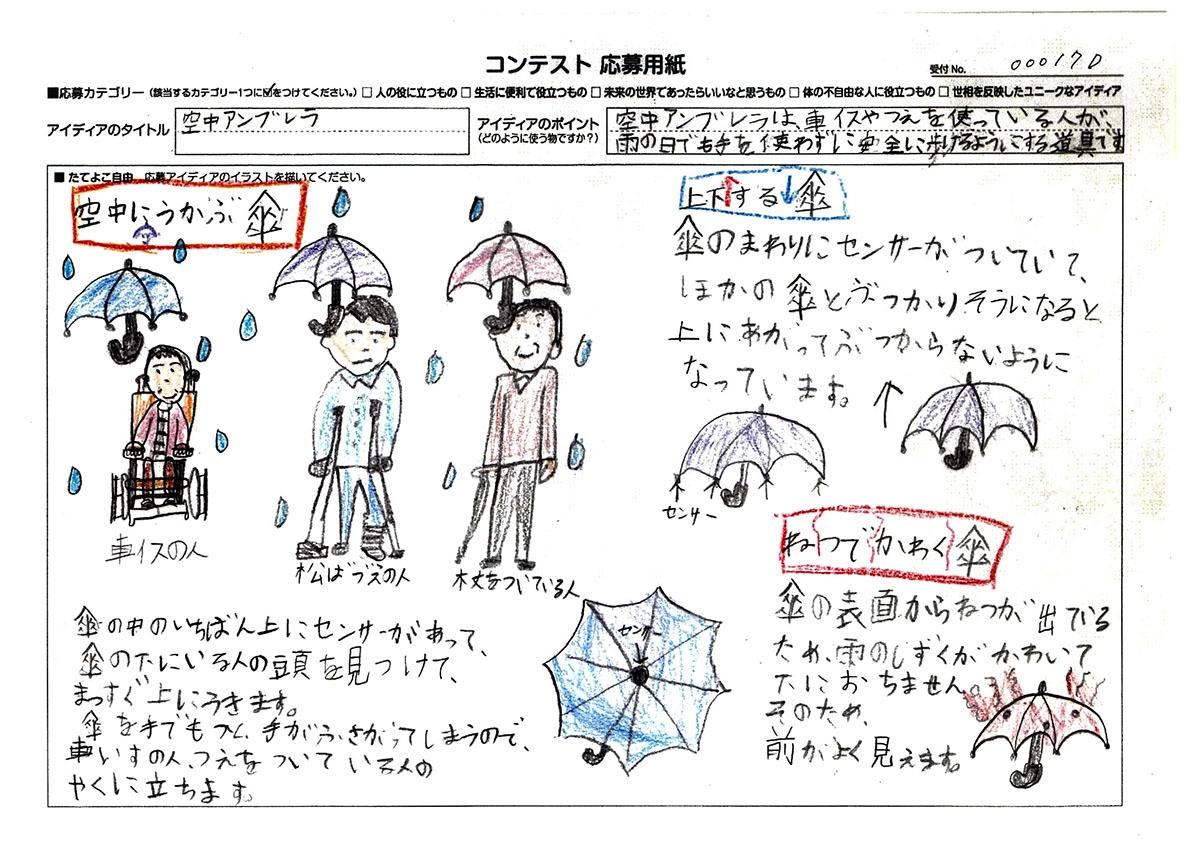 コンテスト 応募用紙
受付No. 00017D
■応募カテゴリー（該当するカテゴリー1つに☑をつけてください。）□ 人の役に立つもの □ 生活に便利で役立つもの □ 未来の世界であったらいいなと思うもの □ 体の不自由な人に役立つもの □ 世相を反映したユニークなアイディア
アイディアのタイトル
空中アンブレラ
アイディアのポイント
（どのように使う物ですか？）
空中アンブレラは、車イスやつえを使っている人が、
雨の日でも手を使わずに安全に歩けるようにする道具です
■ たてよこ自由 応募アイディアのイラストを描いてください。
空中にうかぶ傘
車イスの人
松ばづえの人
杖をついている人
傘の中のいちばん上にセンサーがあって、
傘の下にいる人の頭を見つけて、
まっすぐ上にうきます。
傘を手でもつと、手がふさがってしまうので、
車いすの人、つえをついている人の
やくに立ちます。
センサー
上下する傘
傘のまわりにセンサーがついていて、
ほかの傘とぶつかりそうになると
上にあがってぶつからないように
なっています。
センサー
ねつでかわく傘
傘の表面からねつが出ている
ため、雨のしずくがかわいて
下におちません。
そのため、
前がよく見えます。